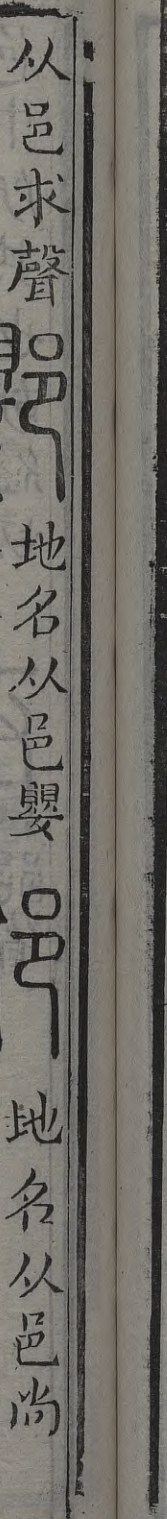 从邑求聲 地名从邑嬰 地名从邑尚